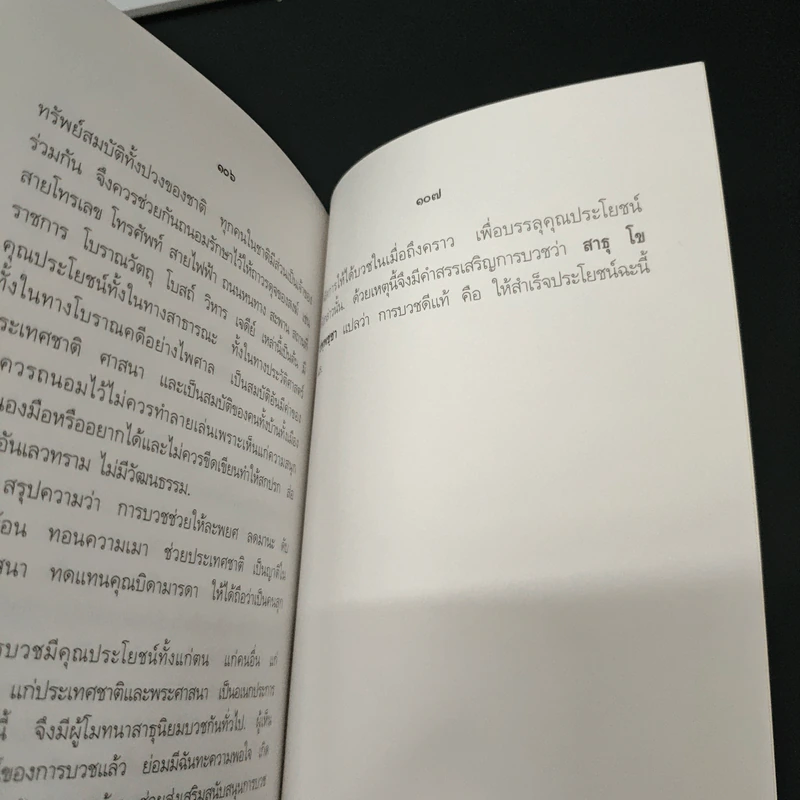 ๑๐๖
ทรัพย์สมบัติทั้งปวงของชาติ ทุกคนในชาติมีส่วนเป็นเจ้าของ
ร่วมกัน จึงควรช่วยกันถนอมรักษาไว้ให้ถาวร
สายโทรเลข โทรศัพท์ สายไฟฟ้า ถนนหนทาง สะพาน
ราชการ โบราณวัตถุ โบสถ์ วิหาร เจดีย์ เหล่านี้เป็นต้น มี
คุณประโยชน์ทั้งในทางสาธารณะ ทั้งในทางประวัติศาสตร์
ทั้งในทางโบราณคดีอย่างไพศาล เป็นสมบัติอันมีค่าของ
ประเทศชาติ ศาสนา และเป็นสมบัติของคนทั้งบ้านทั้งเมือง
ควรถนอมไว้ไม่ควรทำลายเล่นเพราะเห็นแก่ความสนุก
มือหรืออยากได้และไม่ควรขีดเขียนทำให้สกปรก ส่อ
อันเลวทราม ไม่มีวัฒนธรรม.
สรุปความว่า การบวชช่วยให้ละพยศ ลดมานะ ดับ
ร้อน ทอนความเมา ช่วยประเทศชาติ เป็นญาติใน
ทดแทนคุณบิดามารดา ให้ได้ถือว่าเป็นคนสุก
บวชมีคุณประโยชน์ทั้งแก่ตน แก่คนอื่น แก่
แก่ประเทศชาติและพระศาสนา เป็นอเนกประการ
นี้ จึงมีผู้โมทนาสาธุนิยมบวชกันทั่วไป. ผู้เห็น
ของการบวชแล้ว ย่อมมีฉันทะความพอใจ เกิด
ช่วยส่งเสริมสนับสนุนการบวช
๑๐๗
การให้ได้บวชในเมื่อถึงคราว เพื่อบรรลุคุณประโยชน์
นั้น ด้วยเหตุนี้จึงมีคำสรรเสริญการบวชว่า สาธุ โข
แปลว่า การบวชดีแท้ คือ ให้สำเร็จประโยชน์ฉะนี้